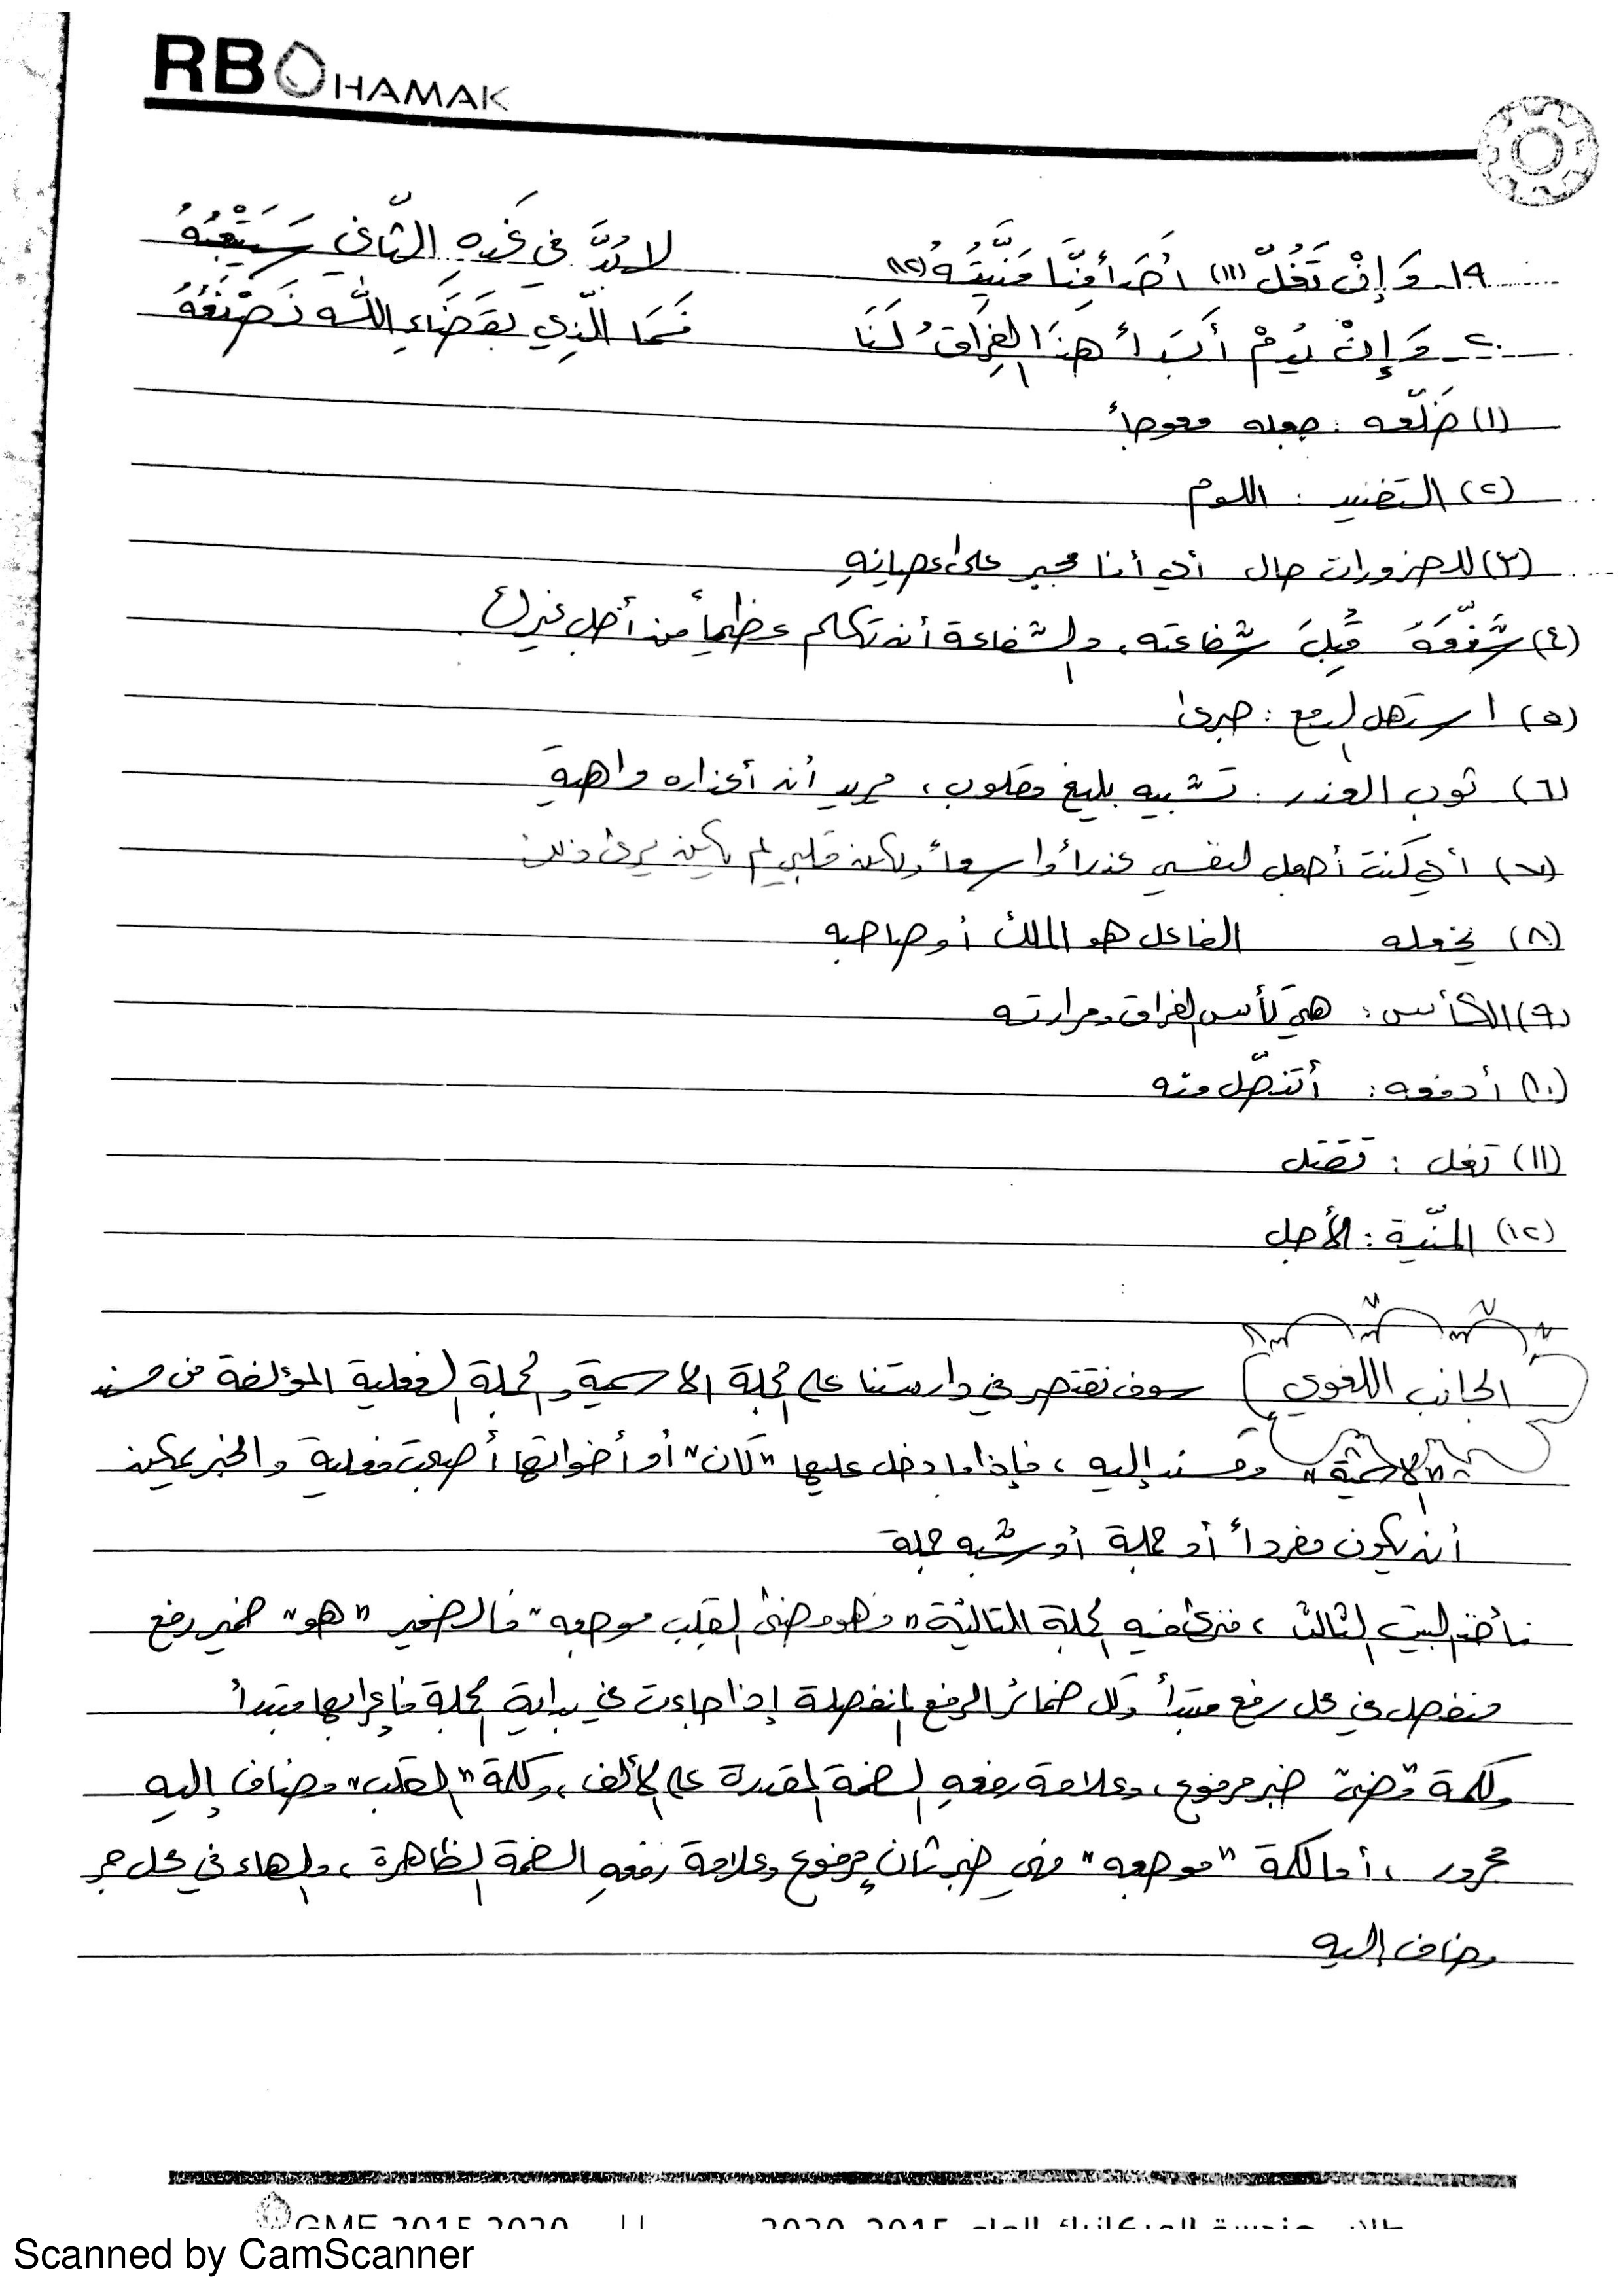 RBOHAMAK
١٩- وَإِنْ تَغُلّ (١١) أحَداً مِنَّا مَنِيَّتُهُ (١٢) لا بُدَّ في غَدِهِ الثّاني سَيَتْبَعُهُ
٢٠- وَإِنْ يَدُمْ أَبَداً هَذَا الفِرَاقُ لَنَا فَمَا الَّذِي بِقَضَاءِ اللَّهِ نَصْنَعُهُ
(١) ضَلّعه : جعله معوجاً
(٢) التفنيد : اللوم
(٣) للضرورات حال أي أنا مجبر على عصيانهِ
(٤) شَفّعَهُ قُبِلَ شفاعته، والشفاعة أن تكلم عظيماً من أجل غيرك
(٥) استهل الدمع : جرى
(٦) ثوب العذر : تشبيه بليغ مقلوب، يريد أن أعذاره واهية
(٧) أي كنت أجعل لنفسي عذراً واسعاً ولكن قلبي لم يكن يرى ذلك
(٨) يخعله الفاعل هو الملك أو صاحبه
(٩) الكأس : هي كأس الفراق ومرارته
(١٠) أدفعه : أتنصّل منه
(١١) تغل : تقتل
(١٢) المنّية : الأجل
الجانب اللغوي سوف نقتصر في دارستنا على الجملة الاسمية والجملة الفعلية المؤلفة من مسند
"الاسمية" ومسند إليه ، فإذا ما دخل عليها "كان" أو أخواتها أصبحت فعلية والخبر يمكن
أن يكون مفرداً أو جملة أو شبه جملة
نأخذ البيت الثالث ، فنرى فيه الجملة التالية "فهو مضنى القلب موجعه" فالضمير "هو" ضمير رفع
منفصل في محل رفع مبتدأ وكل ضمائر الرفع المنفصلة إذا جاءت في بداية الجملة فإعرابها مبتدأ
وكلمة مضنى خبر مرفوع، وعلامة رفعهِ الضمة المقدرة على الألف، وكلمة "القلب" مضاف إليه
مجرور ، أما كلمة "موجعه" فهي خبر ثانٍ مرفوع وعلامة رفعهِ الضمة الظاهرة ، والهاء في محل جر
مضاف إليه
GME 2015-2020 || 2020-2015
Scanned by CamScanner